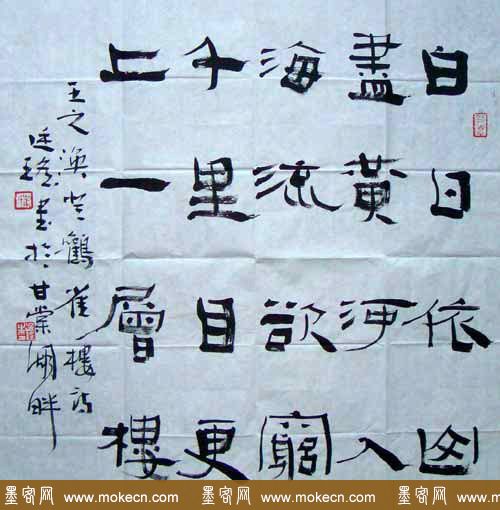 白日依山
盡黃河入
海流欲窮
千里目更
上一層樓
王之渙登鸛雀樓詩
書於甘棠湖畔
墨客网 www.mokecn.com 墨客网 www.mokecn.com 墨客网 www.mokecn.com